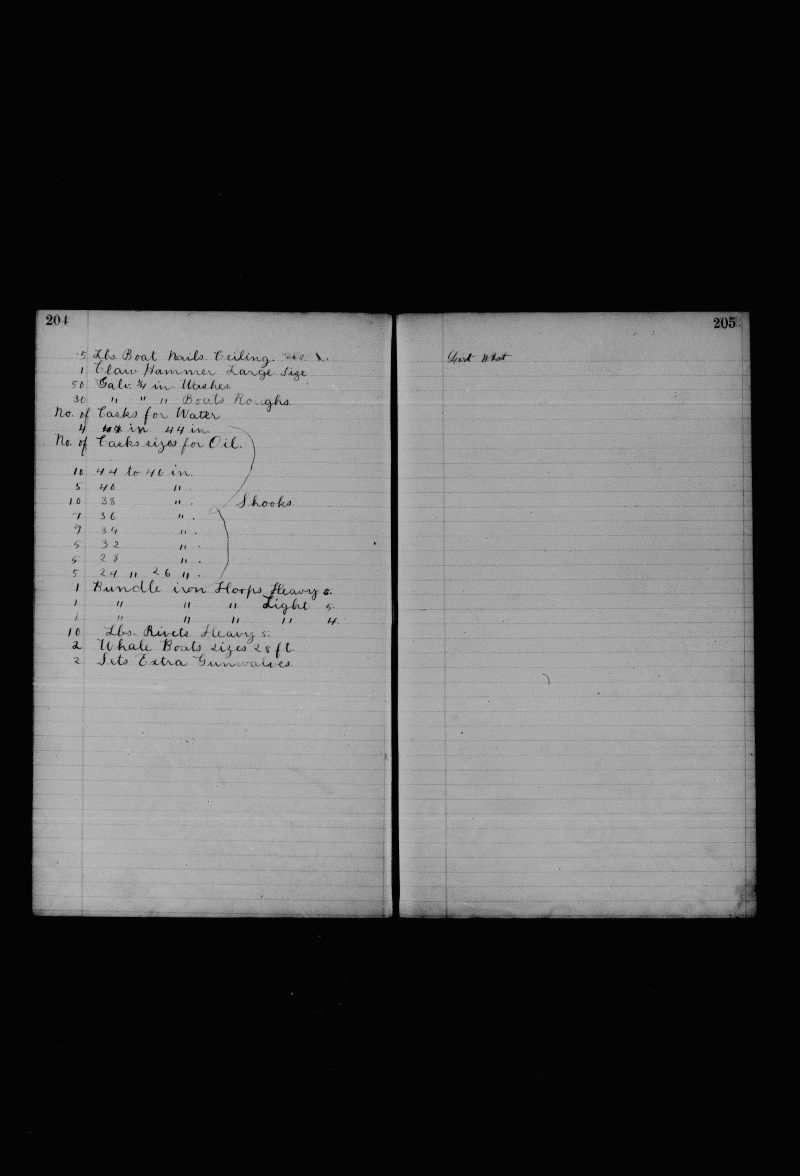 204
5 Lbs. Boat Nails. Ceiling.
1 Claw Hammer Large Size
50 Galv. ¾ in Washes
30 " " " Bouts Roughs
No. of Casks for Water
4 in 44 in.
No. of Casks sizes for Oil.
10 44 to 46 in.
5 40 " .
10 38 " . Shooks
7 36 " .
9 34 " .
5 32 " .
5 28 " .
5 24 " 26 " .
1 Bundle iron Hoops Heavy 5.
1 " " " Light 5
1 " " " " 4.
10 Lbs. Rivets Heavy 5.
2 Whale Boats sizes 28 ft.
2 Sets Extra Gunwalves
205
What